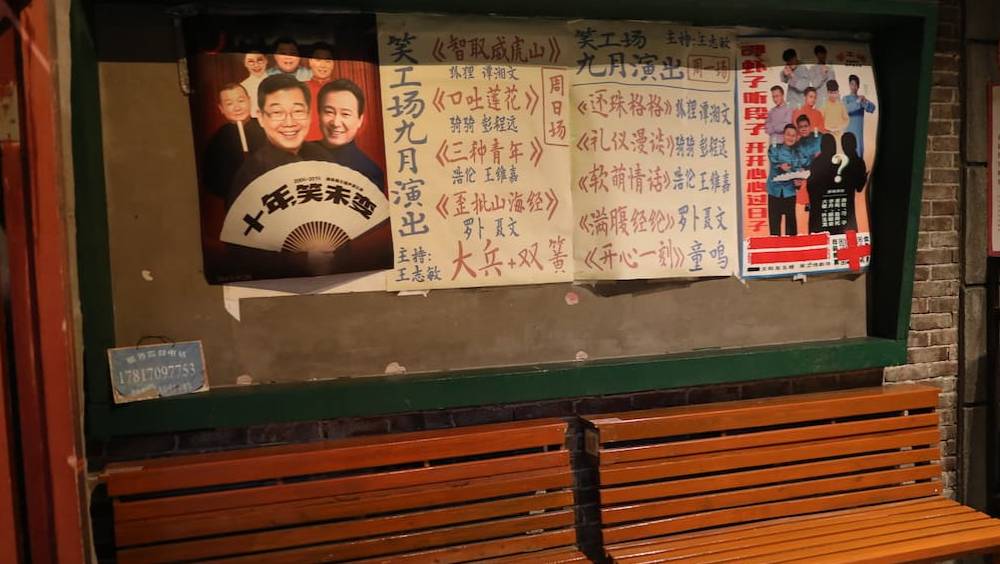 十年，笑未变
笑工场九月演出
主持：
王志敏
周日场
《智取威虎山》
狐狸 谭湘文
《口吐莲花》
骑骑 彭程远
《三种青年》
浩伦 王维嘉
《歪批山海经》
罗卜 夏文
大兵+双簧
笑工场 主持：王志敏
九月演出 周一场
《还珠格格》狐狸 谭湘文
《礼仪漫谈》骑骑 彭程远
《软萌情话》浩伦 王维嘉
《满腹经纶》罗卜 夏文
《开心一刻》童鸣
听段子 开开心心过日子
?
17817097753